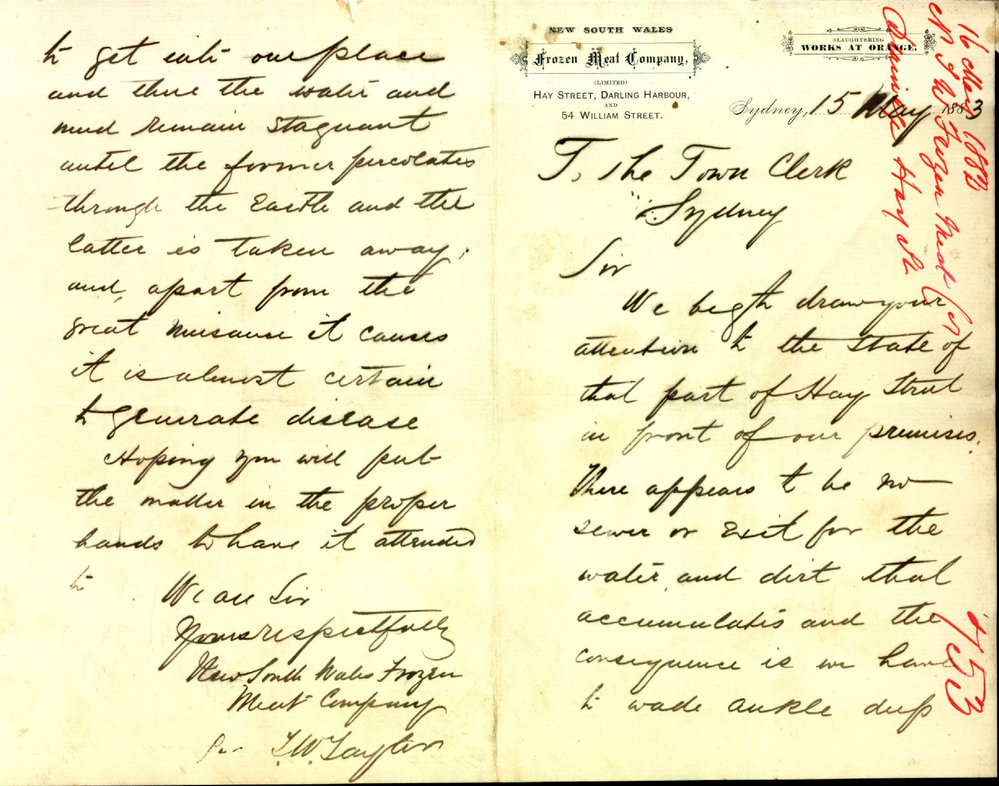 NEW SOUTH WALES
Frozen Meat Company,
(LIMITED)
HAY STREET, DARLING HARBOUR,
AND
54 WILLIAM STREET.
SLAUGHTERING
WORKS AT ORANGE.
Sydney, 15 May 1883
To The Town Clerk
Sydney
Sir
We beg to draw your
attention to the state of
that part of Hay Street
in front of our premises.
There appears to be no
sewer or Exit for the
water and dirt that
accumulates and the
consequence is we have
to wade ankle deep
to get into our place
and there the water and
mud remain stagnant
until the former percolates
through the Earth and the
latter is taken away,
and, apart from the
great nuisance it causes
it is almost certain
to generate disease
Hoping you will put
the matter in the proper
hands to have it attended
to
We are Sir
Yours respectfully
New South Wales Frozen
Meat Company
Per T.W. Taylor
16 1883
N S W Frozen Meat Co
Drainage Hay St
753